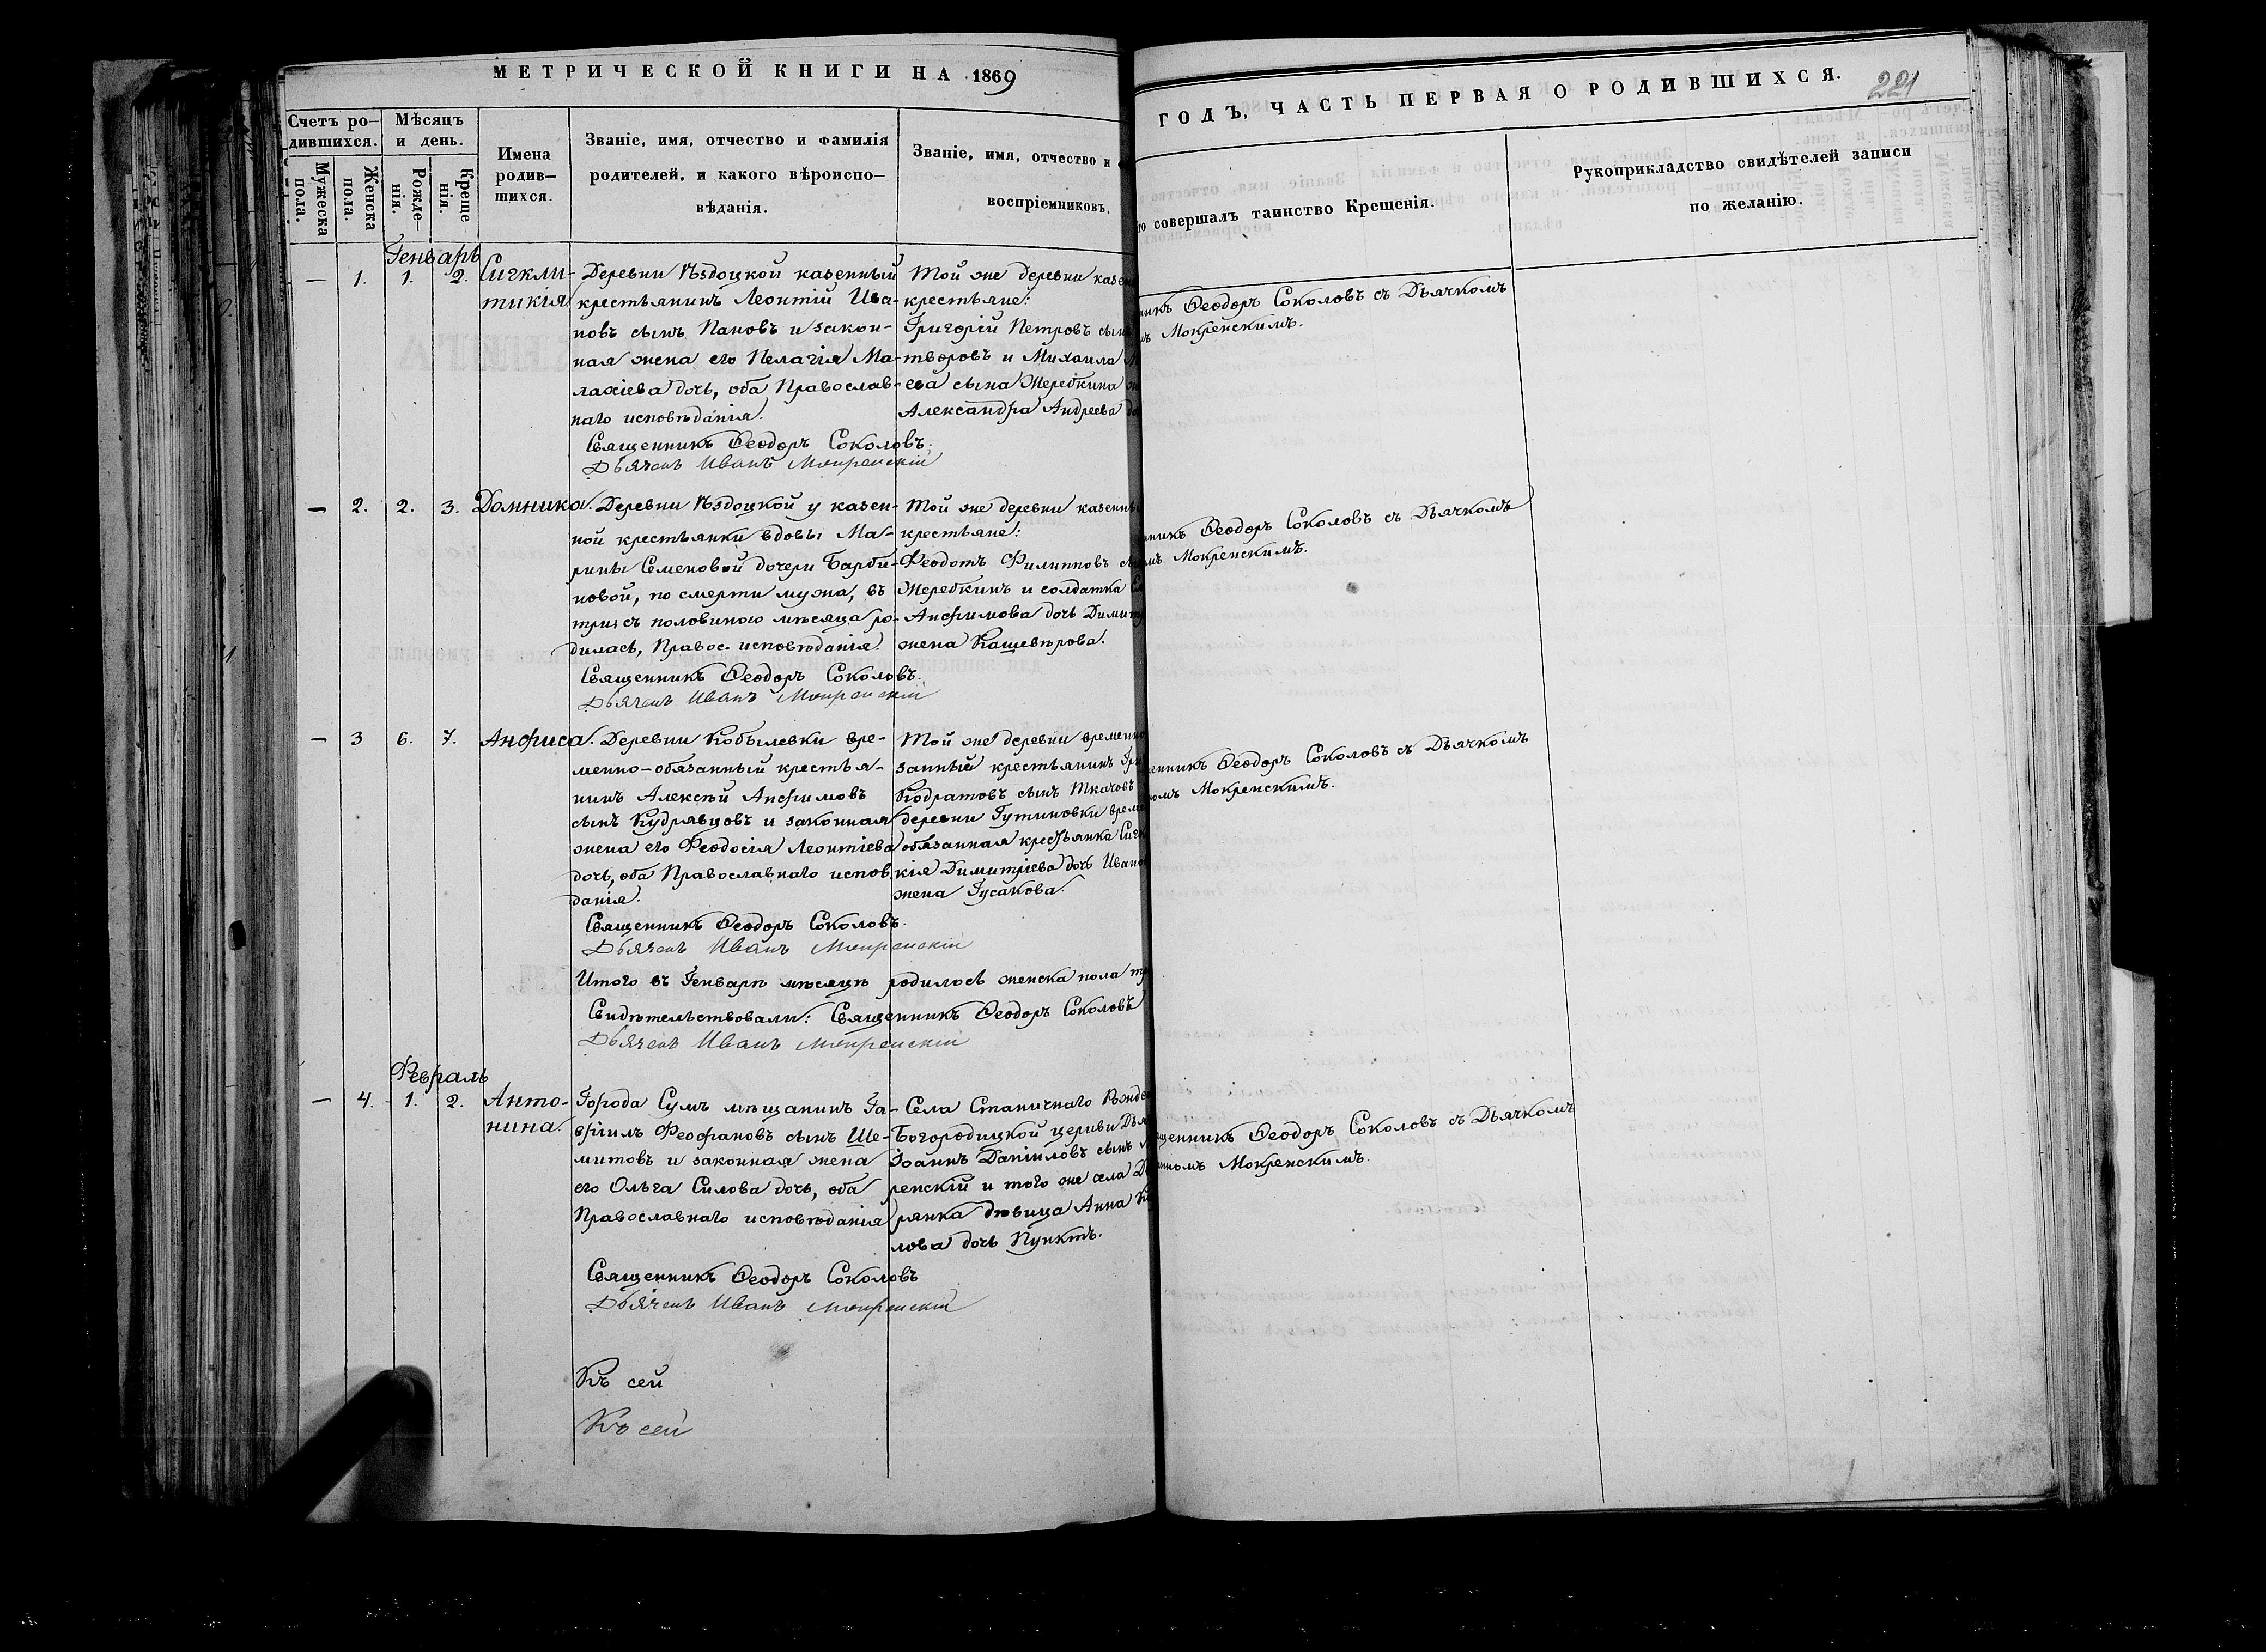 МЕТРИЧЕСКОЙ КНИГИ НА 1869
ГОДЪ, ЧАСТЬ ПЕРВАЯ О РОДИВШИХСЯ.
221
Счетъ ро-
дившихся.
Мужеска
пола.
Женска
пола.
Мѣсяцъ
и день.
Рожде-
нія.
Креще
нія.
Имена
родив-
шихся.
Званіе, имя, отчество и фамилія
родителей, и какого вѣроиспо-
вѣданія.
Званіе, имя, отчество и
воспріемниковъ.
совершалъ таинство Крещенія.
Рукоприкладство свидѣтелей записи
по желанію.
Генварь
— 1. 1. 2.
Сигкли-
тикія
Деревни Ѣздоцкой казенный
крестьянинъ Леонтій Ива-
новъ сынъ Пановъ и закон-
ная жена его Пелагія Ма-
лахіева дочь, оба Православ-
наго исповѣданія.
Священникъ Ѳеодоръ Соколовъ.
Дьячекъ Иванъ Мокренскій
Той же деревни казен
крестьяне:
Григорій Петровъ сынъ
творовъ и Михаила
ева сына Жеребкина
Александра Андреева
никъ Ѳеодоръ Соколовъ съ Дьячкомъ
Мокренскимъ.
— 2. 2. 3.
Домника.
Деревни Ѣздоцкой у казен-
ной крестьянки вдовы Ма-
рины Семеновой дочери Барби-
новой, по смерти мужа, въ
три съ половиною мѣсяца ро-
дилась, Правос. исповѣданія.
Священникъ Ѳеодоръ Соколовъ.
Дьячекъ Иванъ Мокренскій
Той же деревни казенны
крестьяне:
Феодотъ Филипповъ
Жеребкинъ и солдатка
Анфимова дочь Димит
жена Кашевѣрова.
никъ Ѳеодоръ Соколовъ съ Дьячкомъ
мъ Мокренскимъ.
— 3 6. 7.
Анфиса.
Деревни Кобылевки вре-
менно-обязанный крестья-
нинъ Алексѣй Анфимовъ
сынъ Кудрявцовъ и законная
жена его Феодосія Леонтіева
дочь, оба Православнаго испов
данія.
Священникъ Ѳеодоръ Соколовъ.
Дьячекъ Иванъ Мокренскій
Той же деревни временно
занный крестьянинъ Гри
Кодратовъ сынъ Ткачовъ
деревни Гутиновки време
обязанная крестьянка Сигк
кія Димитріева дочь Ивано
жена Гусакова.
енникъ Ѳеодоръ Соколовъ съ Дьячкомъ
номъ Мокренскимъ.
Итого въ Генварѣ мѣсяцѣ родилось женска пола
Свидѣтельствовали: Священникъ Ѳеодоръ Соколовъ
Дьячекъ Иванъ Мокренскій
Февраль
— 4. 1. 2.
Анто-
нина.
Города Сумъ мѣщанинъ Га-
вріилъ Феофановъ сынъ Ше-
митовъ и законная жена
его Ольга Силова дочь, оба
Православнаго исповѣданія
Священникъ Ѳеодоръ Соколовъ
Дьячекъ Иванъ Мокренскій
Села Станичнаго Рожде
Богородицкой церкви Дья
Іоаннъ Даніиловъ сынъ
ренскій и того же села
рянка дѣвица Анна
лова дочь Пунктъ.
щенникъ Ѳеодоръ Соколовъ съ Дьячкомъ
нномъ Мокренскимъ.
Къ сей
Къ сей